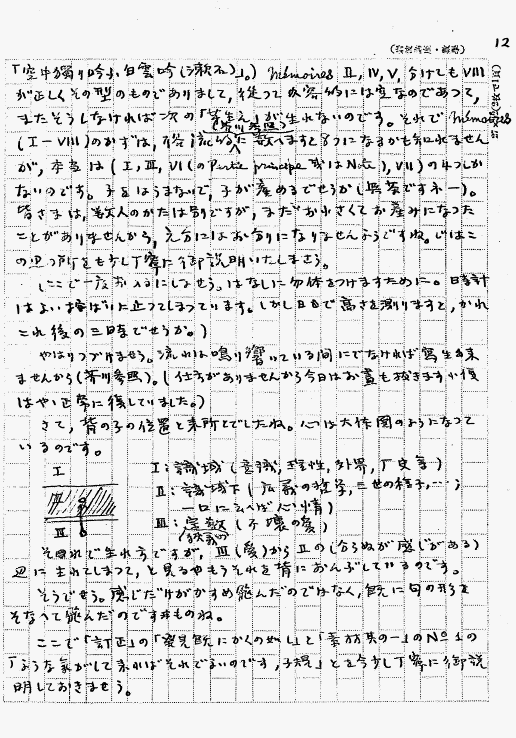 12
「空中獨り吟ふ白雲吟(漱石)」。) Mémoires II, IV, V, 分けても VIII
が正しくその型のものでありまして, 従って内容的には空なのであって,
またそうしなければ次の「芽生え」が生れないのです。それで Mémoires
(芥川参照)
(I−VIII)のかずは, 俗流的に数へますと8つになるかも知れません
が, 本当は (I, III, VI (の Petite principe 或は Note), VII) の4つしか
ないのです。子をはらまないで, 子が産めるでせうか(無茶ですネー)。
皆さまは, 美人のかたは別ですが, まだお小さくてお産みになった
ことがありませんから, 充分にはお分りになりませんようですね。ではこ
の辺の所をも少し丁寧に御説明いたしませう。
(ここで一度お入るにしませう。はなしに勿体をつけますために。日時計
はよい按ばいに止ってしまっています。しかし日日で高さを測りますと, かれ
これ後の三時でせうか。)
やはりつづけませう。流れは鳴り響いている間にでなければ寫生出来
ませんから(芥川参照)。(仕方がありませんから今日はお蓋も抜きます
はや正常に復していました。)
さて, 背の子の位置と来所とでしたね。心は大体図のようになって
いるのです。
I
II
III
I: 識域 (意識, 理性, 外界, 歴史等)
II: 識域下 (広義の数学, 三世の格子, …;
一口にいへば心情)
III: 虚数 (不壊の愛)
(狭義の)
それで生れ方ですが, III(愛)から IIの(分らぬが感じがある)
辺に生れてしまって, と見るやもうそれを背におんぶしているのです。
そうでせう。感じだけがかすめ飛んだのではなく, 既に句の形を
そなへて飛んだのですものね。
ここで「訂正」の「発見既にかくの如し」と「素描其の一」の No 1 の
「ような気がして来ればそれでよいのです, 子規」とを今少し丁寧に御説
明しておきませう。